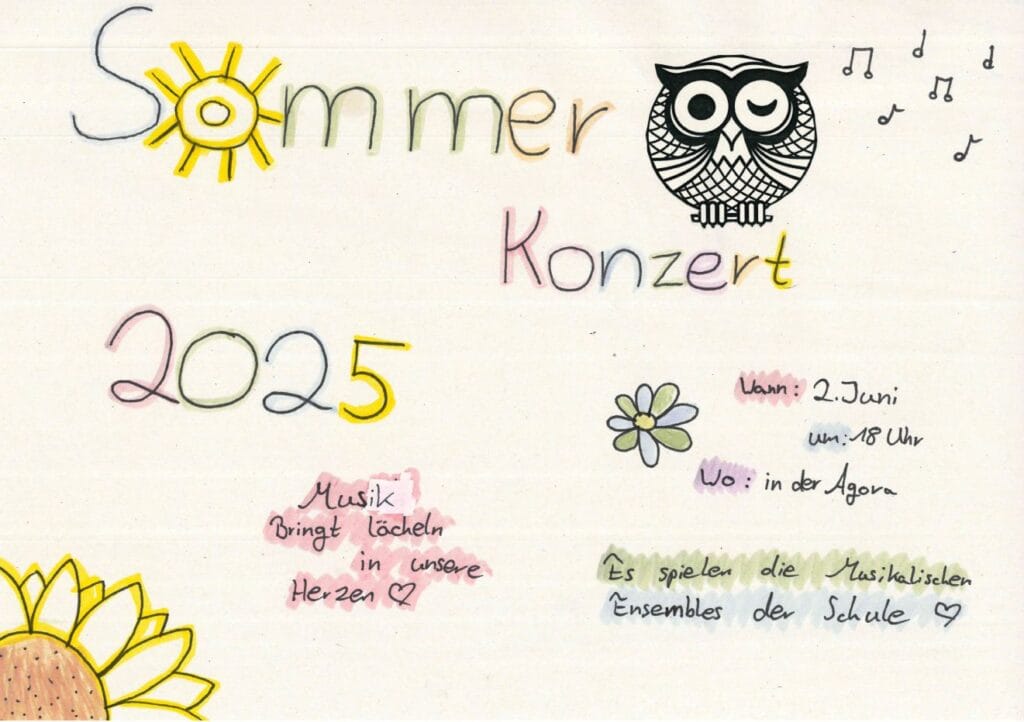 Sommer
Konzert
2025
Wann: 2. Juni
um: 18 Uhr
Wo: in der Agora
Musik
Bringt lächeln
in unsere
Herzen ♡
Es spielen die Musikalischen
Ensembles der Schule ♡